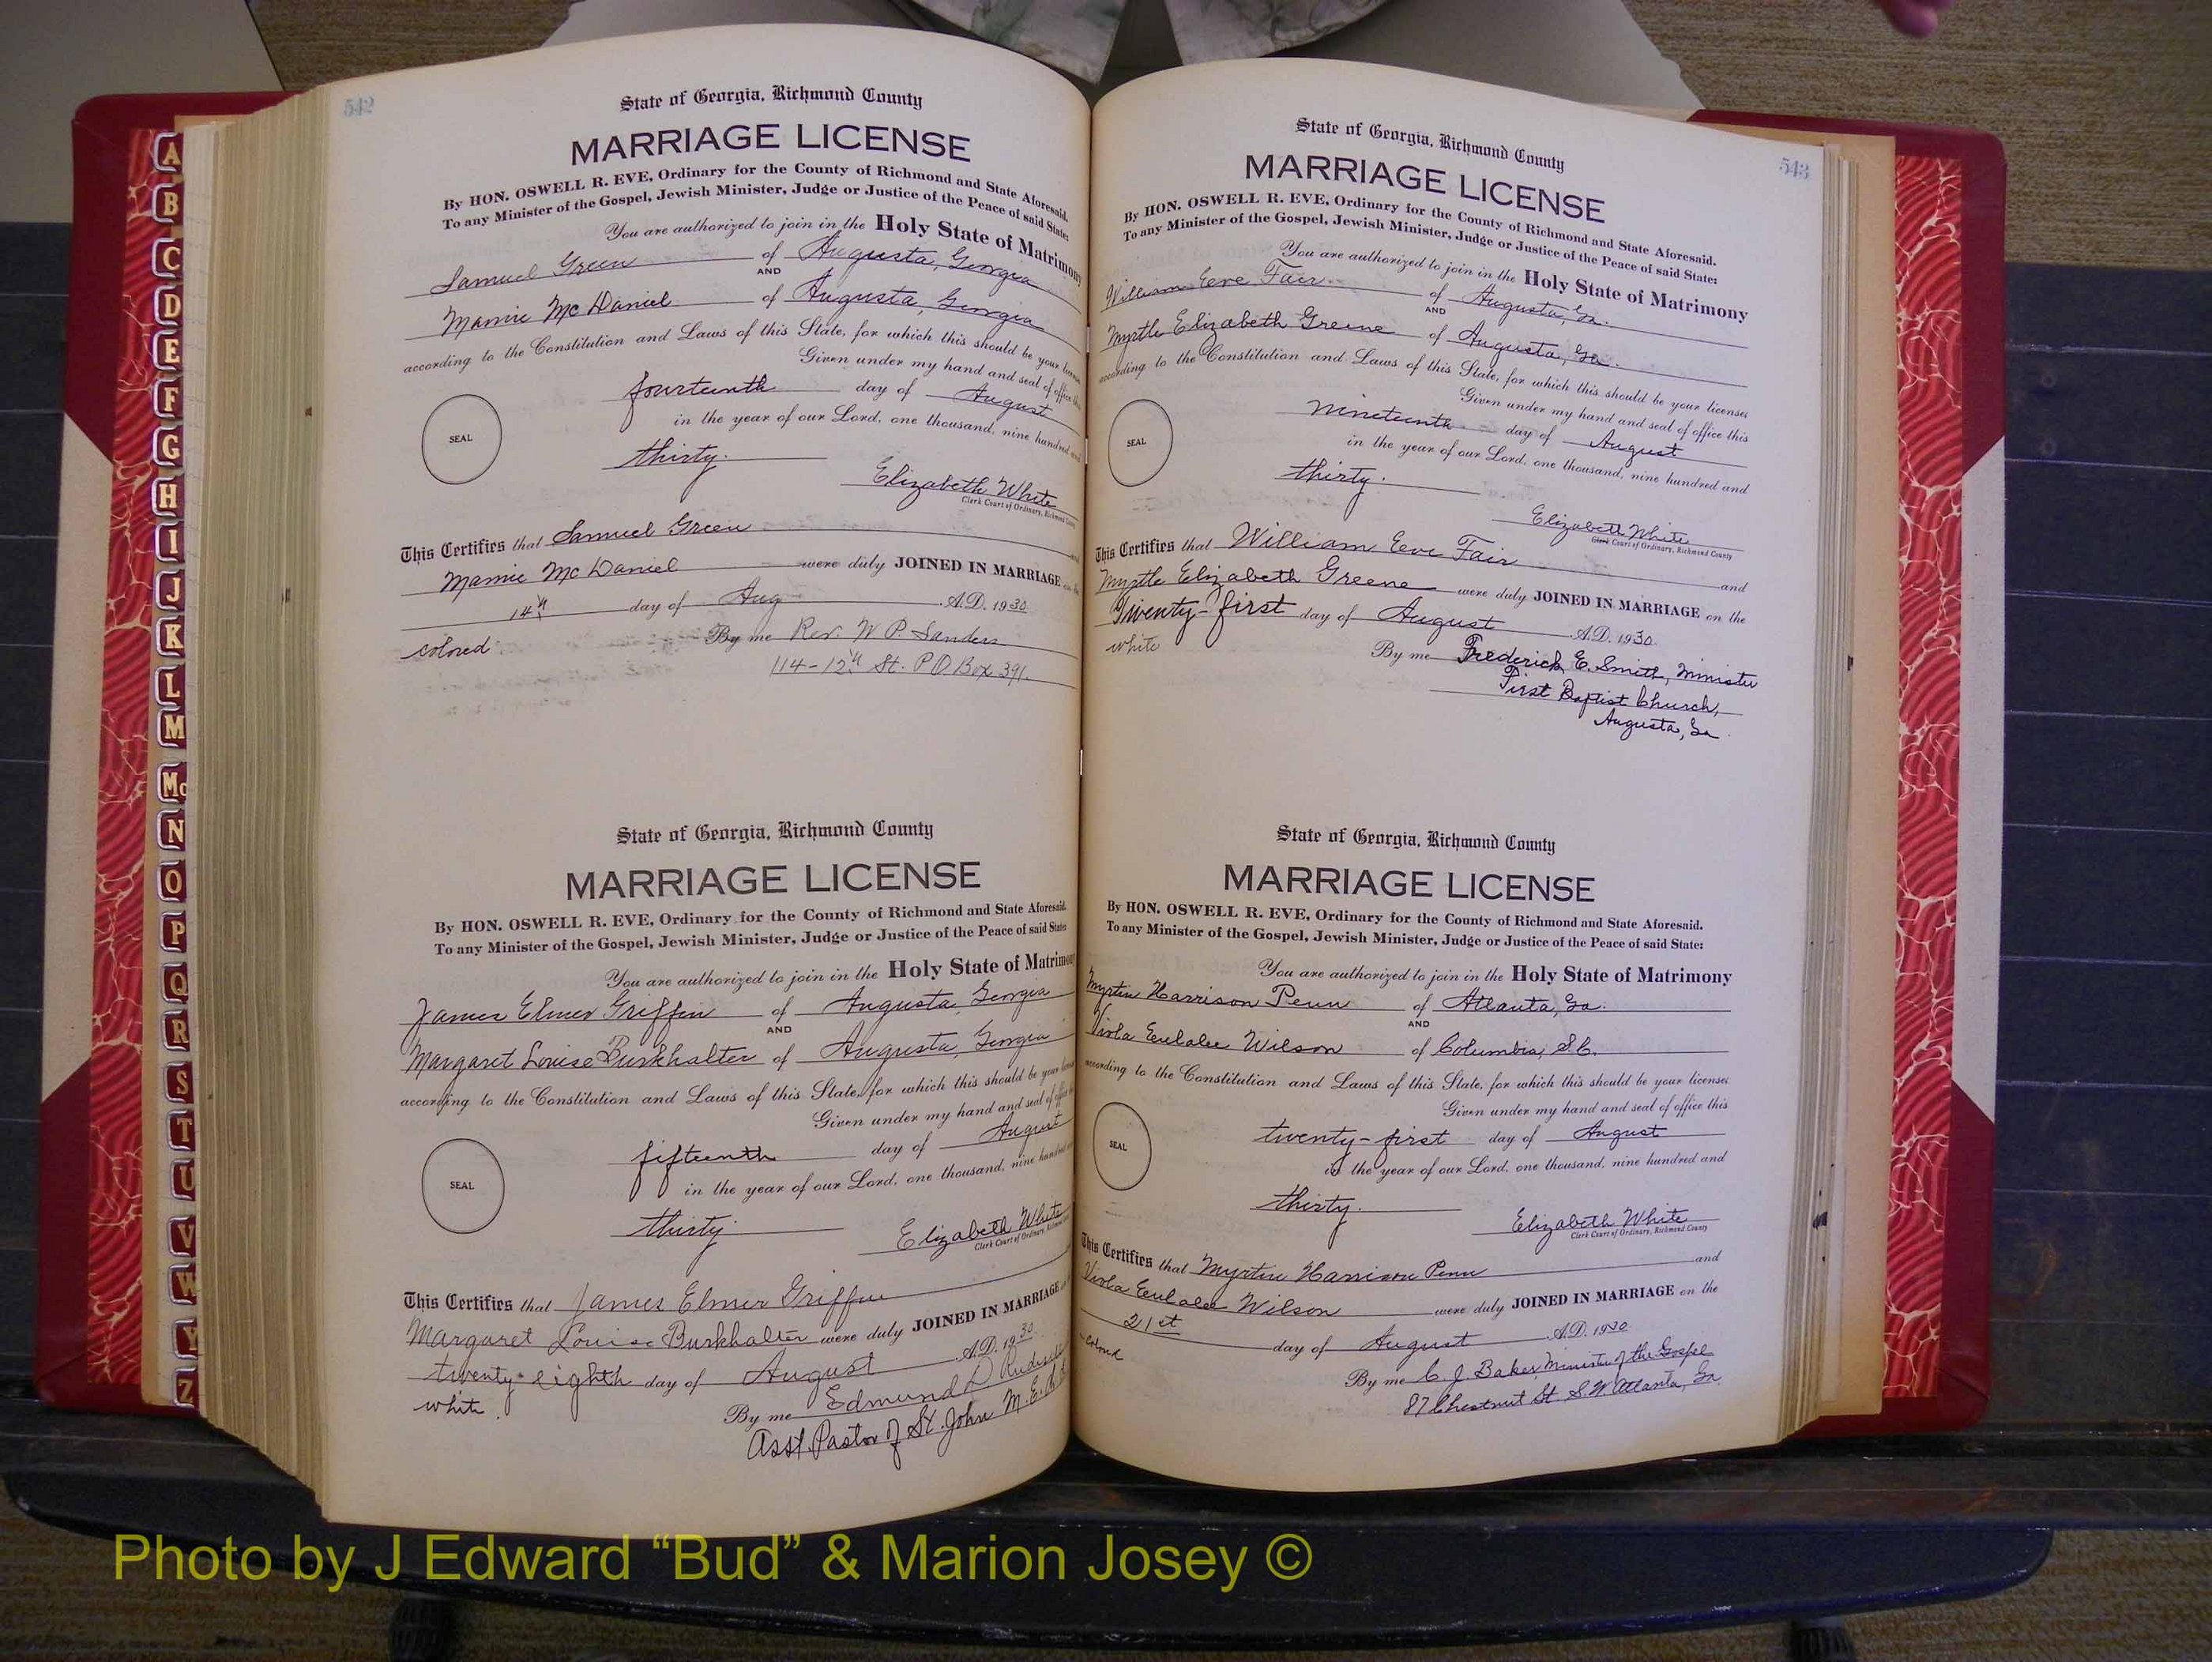 542
State of Georgia, Richmond County
MARRIAGE LICENSE
By HON. OSWELL R. EVE, Ordinary for the County of Richmond and State Aforesaid.
To any Minister of the Gospel, Jewish Minister, Judge or Justice of the Peace of said State:
You are authorized to join in the Holy State of Matrimony
Samuel Green of Augusta, Georgia
AND
Mamie McDaniel of Augusta, Georgia
according to the Constitution and Laws of this State, for which this should be your
Given under my hand and seal of office
fourteenth day of August
in the year of our Lord, one thousand, nine hundred and
SEAL
thirty.
Elizabeth White
Clerk Court of Ordinary, Richmond
This Certifies that Samuel Green
Mamie McDaniel were duly JOINED IN MARRIAGE
14th day of Aug A.D. 1930
colored By me Rev. W. P. Sanders
114-12th St. P.O. Box 391.
State of Georgia, Richmond County
MARRIAGE LICENSE
By HON. OSWELL R. EVE, Ordinary for the County of Richmond and State Aforesaid.
To any Minister of the Gospel, Jewish Minister, Judge or Justice of the Peace of said State
You are authorized to join in the Holy State of Matrimony
James Elmer Griffin of Augusta, Georgia
AND
Margaret Louise Burkhalter of Augusta, Georgia
according to the Constitution and Laws of this State, for which this should be your
Given under my hand and seal of
fifteenth day of August
in the year of our Lord, one thousand, nine hundred
SEAL
thirty.
Elizabeth White
Clerk Court of Ordinary,
This Certifies that James Elmer Griffin
Margaret Louise Burkhalter were duly JOINED IN MARRIAGE
twenty-eighth day of August A.D. 1930
white. By me Edmund D
Asst Pastor of St. John M.E.
543
State of Georgia, Richmond County
MARRIAGE LICENSE
By HON. OSWELL R. EVE, Ordinary for the County of Richmond and State Aforesaid.
To any Minister of the Gospel, Jewish Minister, Judge or Justice of the Peace of said State:
You are authorized to join in the Holy State of Matrimony
William Eve Fair of Augusta, Ga.
AND
Myrtle Elizabeth Greene of Augusta, Ga.
according to the Constitution and Laws of this State, for which this should be your licenses
Given under my hand and seal of office this
nineteenth day of August
in the year of our Lord, one thousand, nine hundred and
SEAL
thirty.
Elizabeth White
Clerk Court of Ordinary, Richmond County
This Certifies that William Eve Fair and
Myrtle Elizabeth Greene were duly JOINED IN MARRIAGE on the
Twenty-first day of August A.D. 1930.
white By me Frederick E. Smith, Minister
First Baptist Church,
Augusta, Ga.
State of Georgia, Richmond County
MARRIAGE LICENSE
By HON. OSWELL R. EVE, Ordinary for the County of Richmond and State Aforesaid.
To any Minister of the Gospel, Jewish Minister, Judge or Justice of the Peace of said State:
You are authorized to join in the Holy State of Matrimony
Harrison Penn of Atlanta, Ga.
AND
Viola Eulalee Wilson of Columbia, S.C.
according to the Constitution and Laws of this State, for which this should be your licenses
Given under my hand and seal of office this
twenty-first day of August
in the year of our Lord, one thousand, nine hundred and
SEAL
thirty.
Elizabeth White
Clerk Court of Ordinary, Richmond County
This Certifies that Harrison Penn and
Viola Eulalee Wilson were duly JOINED IN MARRIAGE on the
21st day of August A.D. 1930
By me C. J. Baker, Minister of the Gospel
87 Chestnut St. S.W. Atlanta, Ga.
A
B
C
D
E
F
G
H
I
J
K
L
M
Mc
N
O
P
Q
R
S
T
U
V
W
Y
Z
Photo by J Edward “Bud” & Marion Josey ©